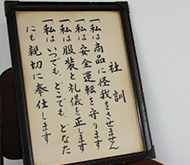 社訓
一私は商品に怪我をさせません
一私は安全運転を守ります
一私は服装と礼儀を正します
一私はいつでも、どこでも、どなた
にも親切に奉仕します